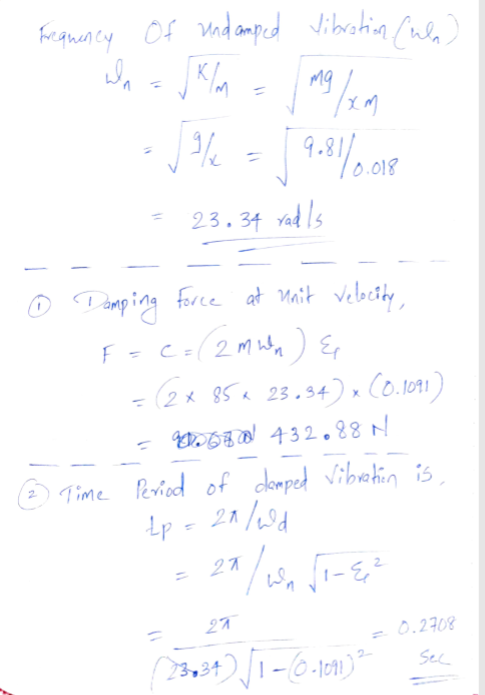 Frequency Of undamped Vibration (ωn)
ωn = √K/m = √mg/xm
= √g/x = √9.81/0.018
= 23.34 rad/s
① Damping force at unit velocity,
F = C = (2mωn) ξ
= (2 x 85 x 23.34) x (0.1091)
= 432.88 N
② Time Period of damped Vibration is,
tp = 2π/ωd
= 2π/ωn √1-ξ²
= 2π/(23.34)√1-(0.1091)² = 0.2708 sec